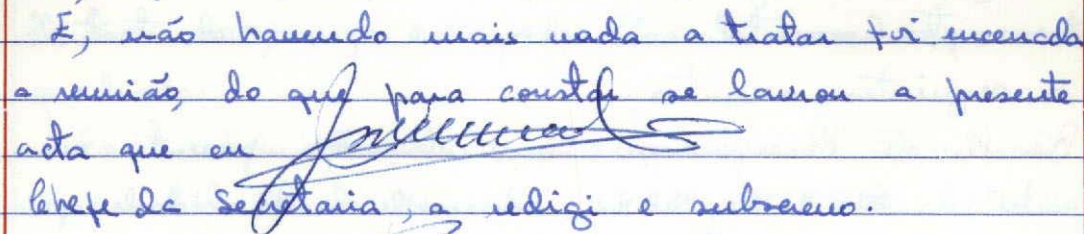 E, não havendo mais nada a tratar foi encerrada
a reunião, do que para constar se lavrou a presente
acta que eu
Chefe da Secretaria, a redigi e subscrevo.